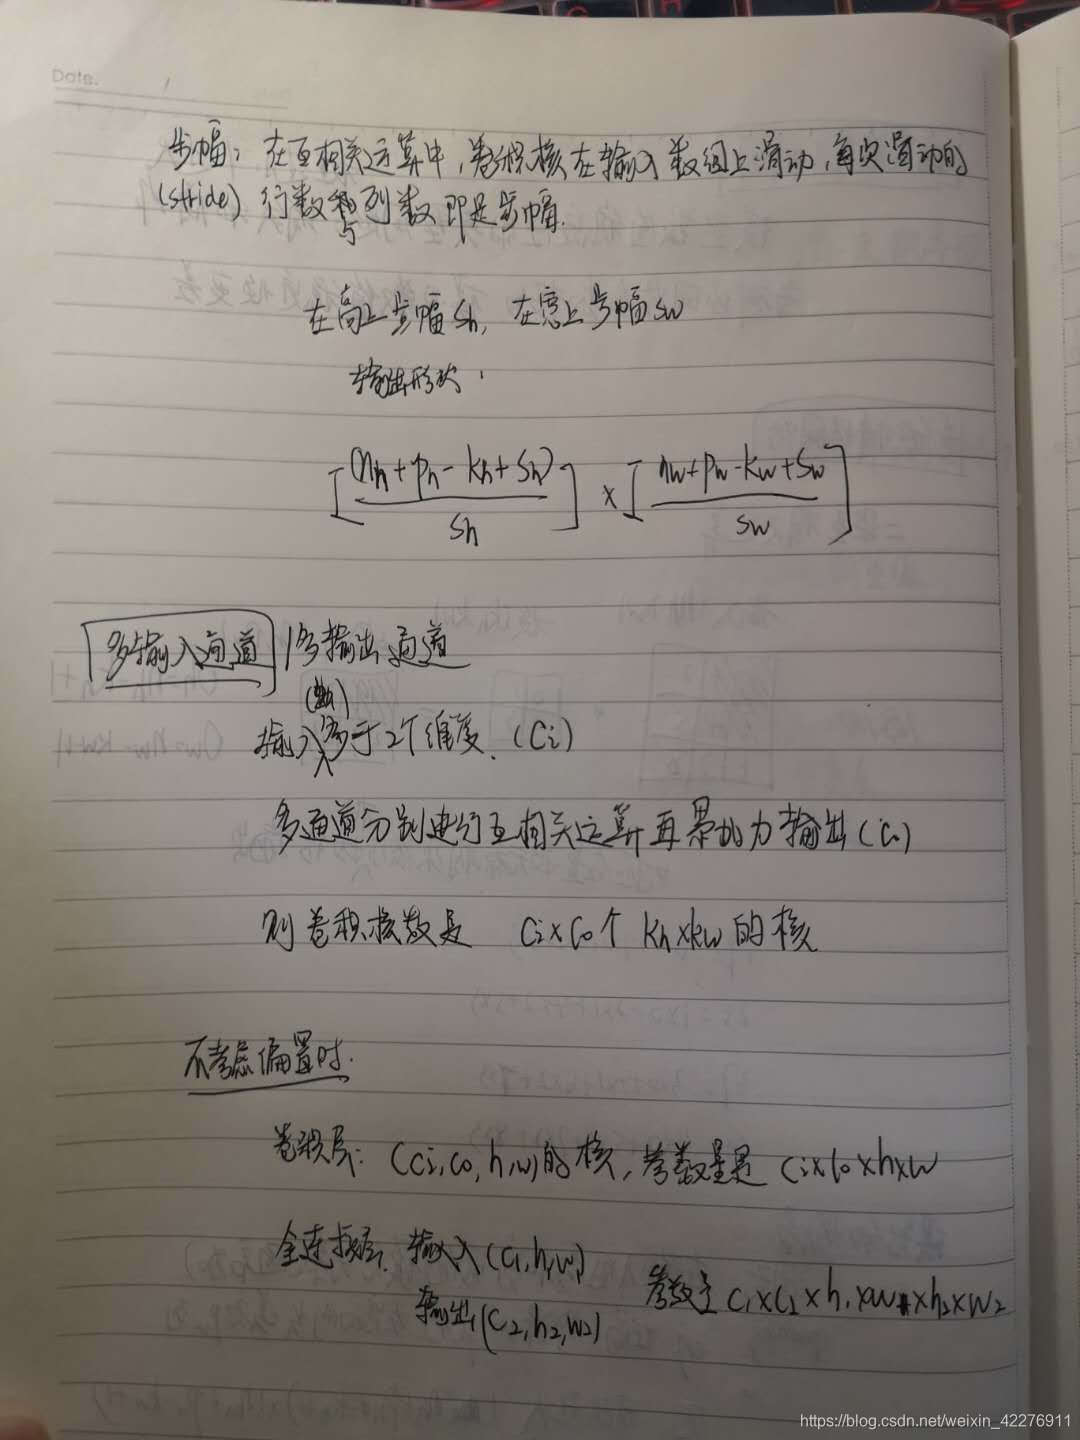 Date.
步幅：在互相关运算中，卷积核在输入数组上滑动，每次滑动的
(stride) 行数与列数即是步幅.
在高上步幅 Sh, 在宽上步幅 Sw
输出形状：
[(nh+ph-kh+Sh)/Sh] × [nw+pw-kw+Sw/Sw]
多输入通道 / 多输出通道
输入多于2个维度. (Ci)
多通道分别进行互相关运算再累加为输出 (Co)
则卷积核数是 Ci×Co个 kh×kw的核
不考虑偏置时.
卷积层: (Ci, Co, h, w)的核, 参数量是 Ci×Co×h×w
全连接层: 输入(C1, h1, w1)
输出(C2, h2, w2) 参数量 C1×C2×h1×w1×h2×w2
https://blog.csdn.net/weixin_42276911